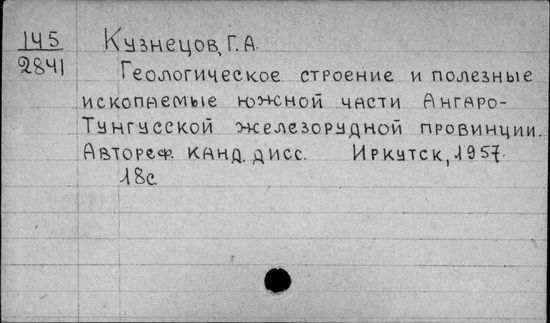 145 Кузнецов, Г. А.
2841
Геологическое строение и полезные
ископаемые южной части Ангаро-
Тунгусской железорудной провинции.
Автореф. канд. дисс. Иркутск, 1957.
18с.